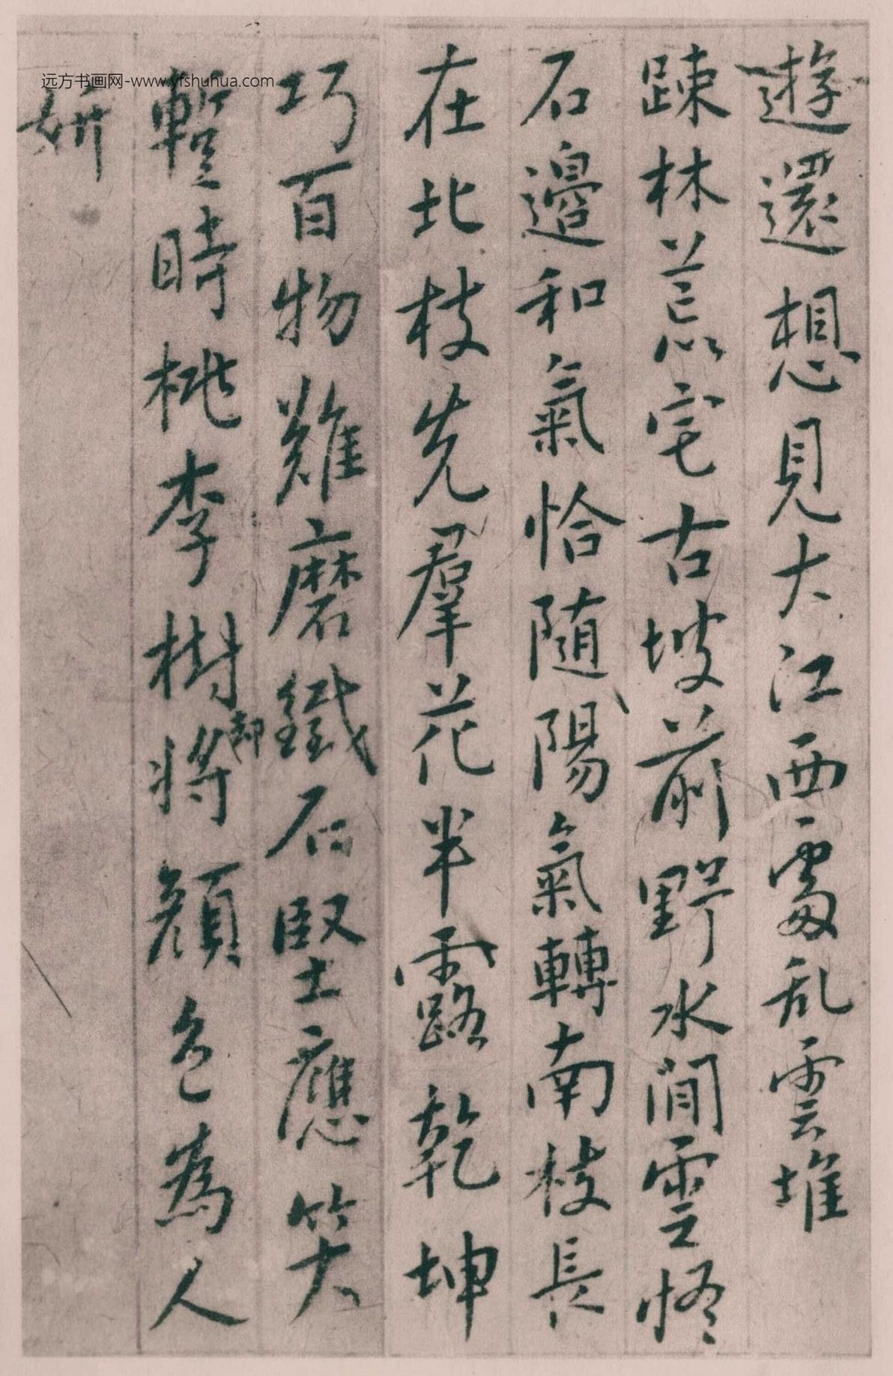 远方书画网-www.yfshuhua.com
遊還想見大江西處乱雲堆
踈林荒宅古坡前野水閒雲恠
石邉和氣恰随陽氣轉南枝長
在北枝先羣花半露乾坤
巧百物難磨鐵石堅應笑
暫時桃李樹將顔色為人
却
妍